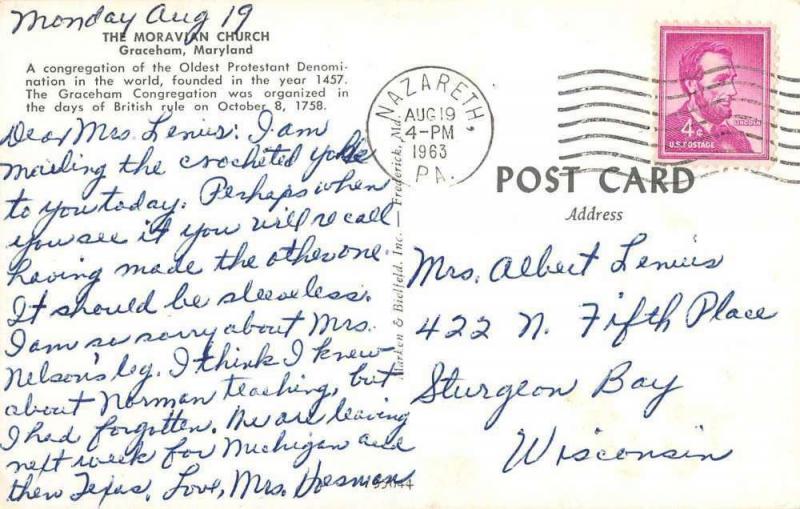 Monday Aug 19
THE MORAVIAN CHURCH
Graceham, Maryland
A congregation of the Oldest Protestant Denomi-
nation in the world, founded in the year 1457.
The Graceham Congregation was organized in
the days of British rule on October 8, 1758.
Dear Mrs. Lenius: I am
mailing the crocheted yoke
to you today. Perhaps when
you see it you will recall
having made the other one.
It should be sleeveless.
I am so sorry about Mrs.
Nelson's leg. I think I knew
about Norman teaching, but
I had forgotten. We are leaving
next week for Michigan and
then Texas. Love, Mrs.
Marken & Bielfeld, Inc. — Frederick, Md.
NAZARETH,
AUG 19
4-PM
1963
PA.
LINCOLN
4¢
U.S. POSTAGE
POST CARD
Address
Mrs. Albert Lenius
422 N. Fifth Place
Sturgeon Bay
Wisconsin